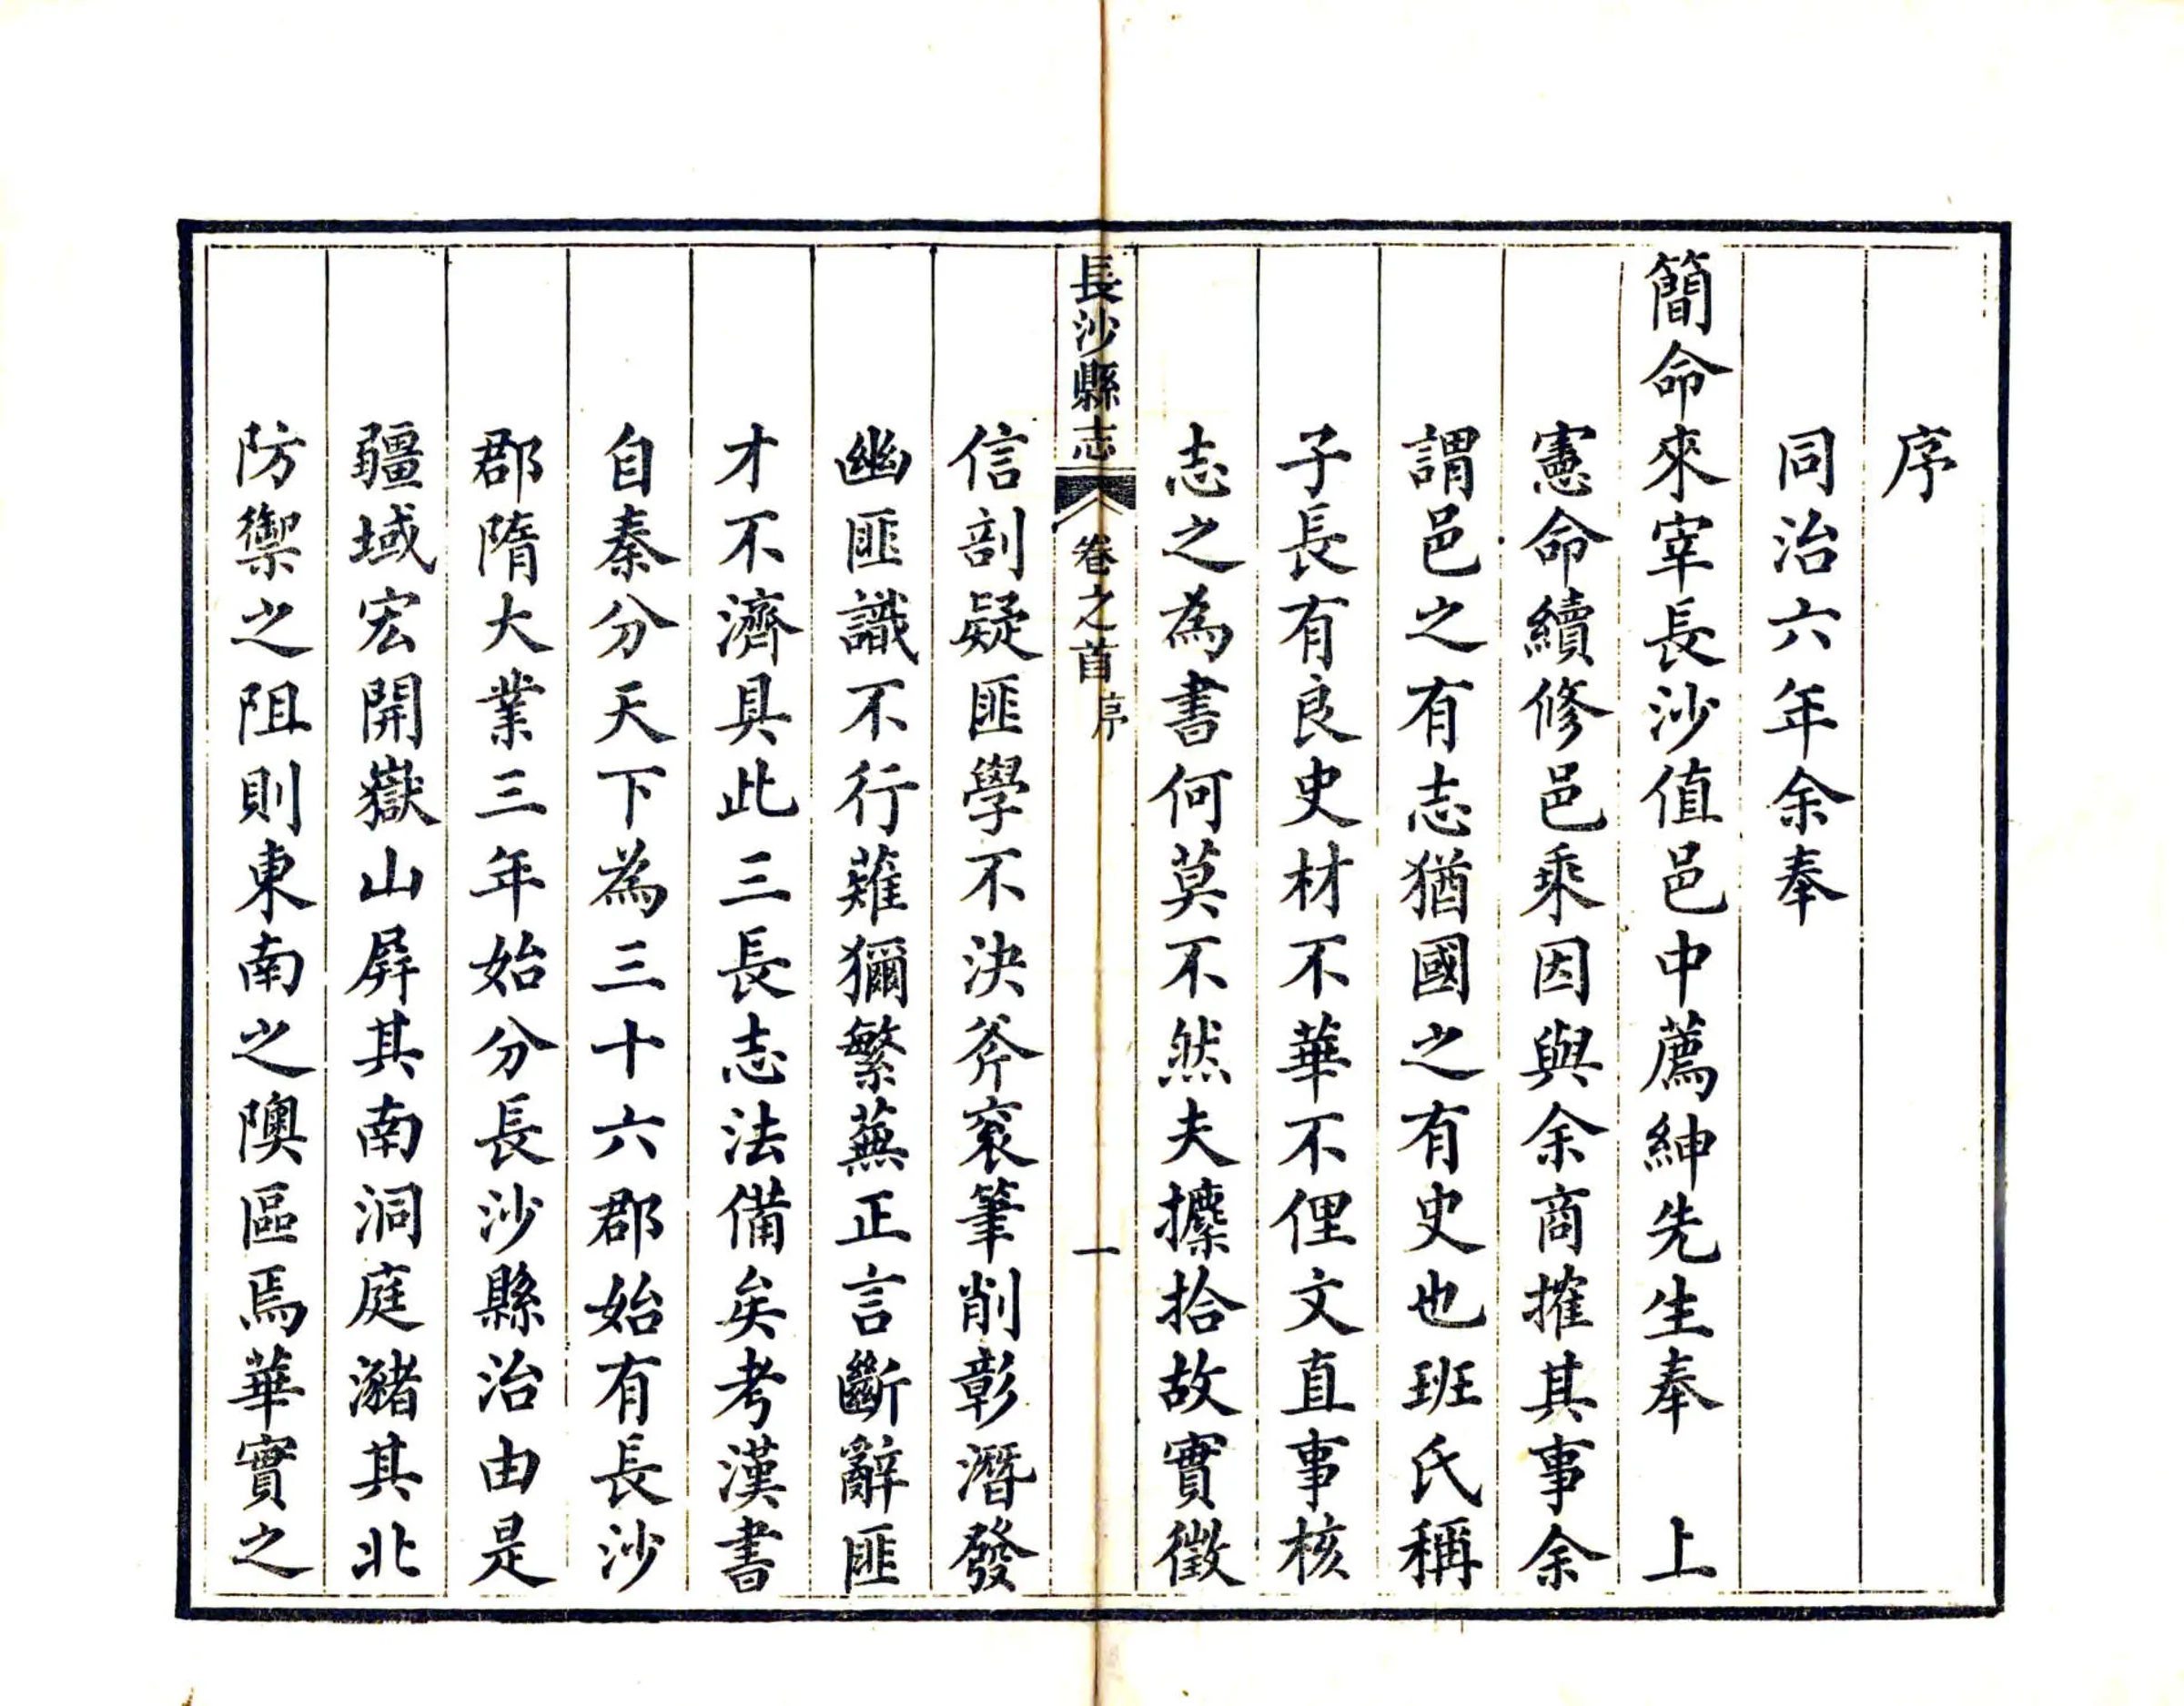 序
同治六年余奉
簡命來宰長沙值邑中薦紳先生奉　上
憲命續修邑乘因與余商搉其事余
謂邑之有志猶國之有史也班氏稱
子長有良史材不華不俚文直事核
志之為書何莫不然夫攈拾故實徵
長沙縣志　卷之首　序　一
信剖疑匪學不決斧袞筆削彰潛發
幽匪識不行薙獮繁蕪正言斷辭匪
才不濟具此三長志法備矣考漢書
自秦分天下為三十六郡始有長沙
郡隋大業三年始分長沙縣治由是
疆域宏開嶽山屏其南洞庭瀦其北
防禦之阻則東南之隩區焉華實之